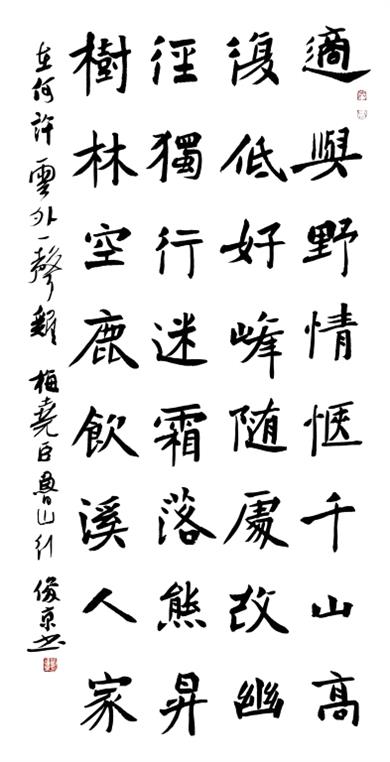 適與野情惬千山高
復低好峰随處改幽
徑獨行迷霜落熊昇
樹林空鹿飲溪人家
在何許雲外一聲雞 梅堯臣魯山行 俊京书